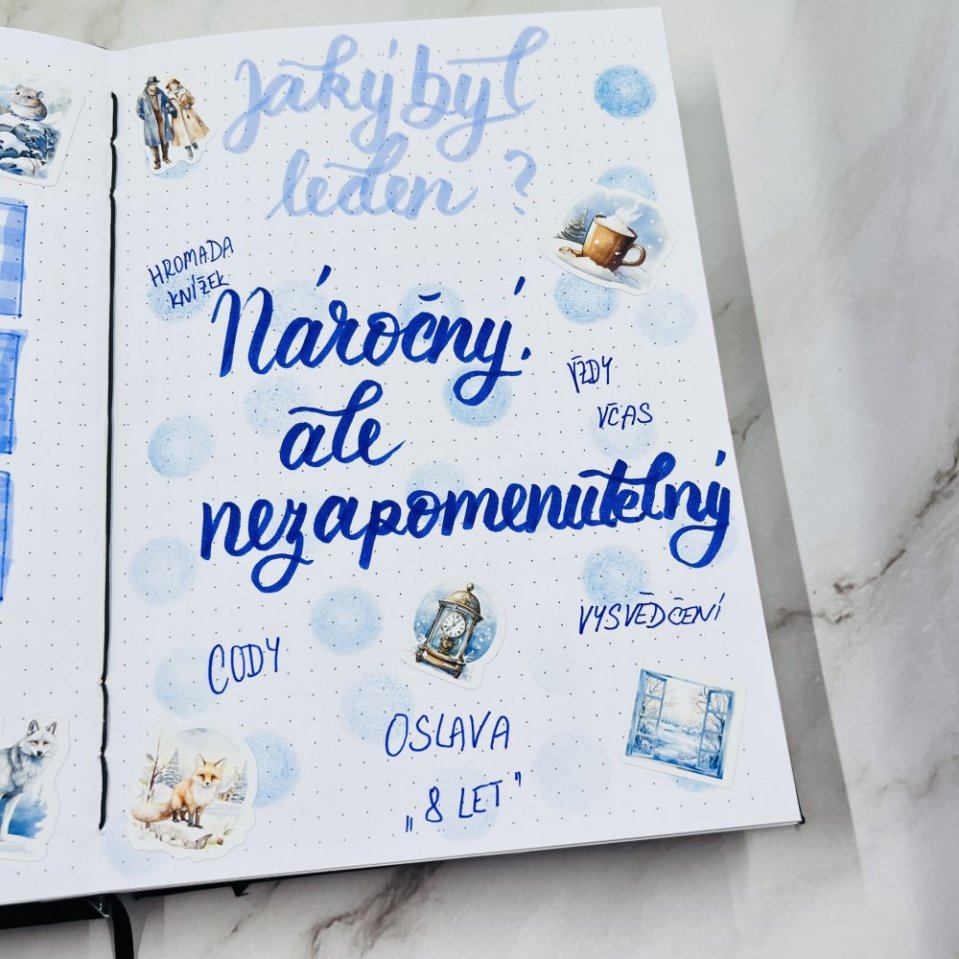 Jaký byl
leden ?
HROMADA
KNÍŽEK
Náročný.
ale
nezapomenutelný
VŽDY
VČAS
VYSVĚDČENÍ
CODY
OSLAVA
„8 LET"